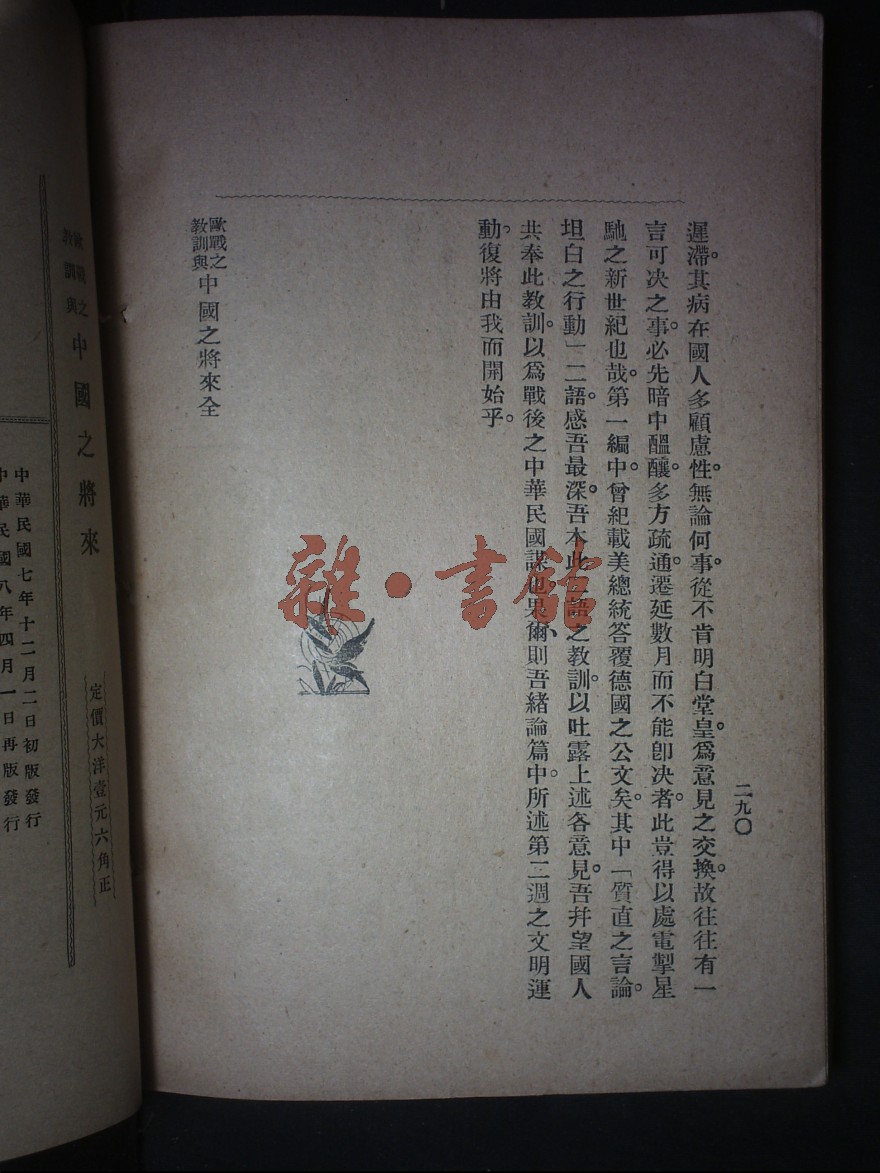 二九〇
遲滯。其病在國人多顧慮性。無論何事。從不肯明白堂皇。爲意見之交換。故往往有一
言可決之事。必先暗中醞釀。多方疏通。遷延數月而不能卽決者。此豈得以處電掣星
馳之新世紀也哉。第一編中。曾紀載美總統答覆德國之公文矣。其中「質直之言論。
坦白之行動」二語。感吾最深。吾本此二語之教訓。以吐露上述各意見。吾幷望國人
共奉此教訓。以爲戰後之中華民國謀也。果爾、則吾緒論篇中。所述第二週之文明運
動。復將由我而開始乎。
歐戰之教訓與中國之將來全
雜·書館
歐戰之教訓與中國之將來
定價大洋壹元六角正
中華民國七年十二月二日初版發行
中華民國八年四月一日再版發行